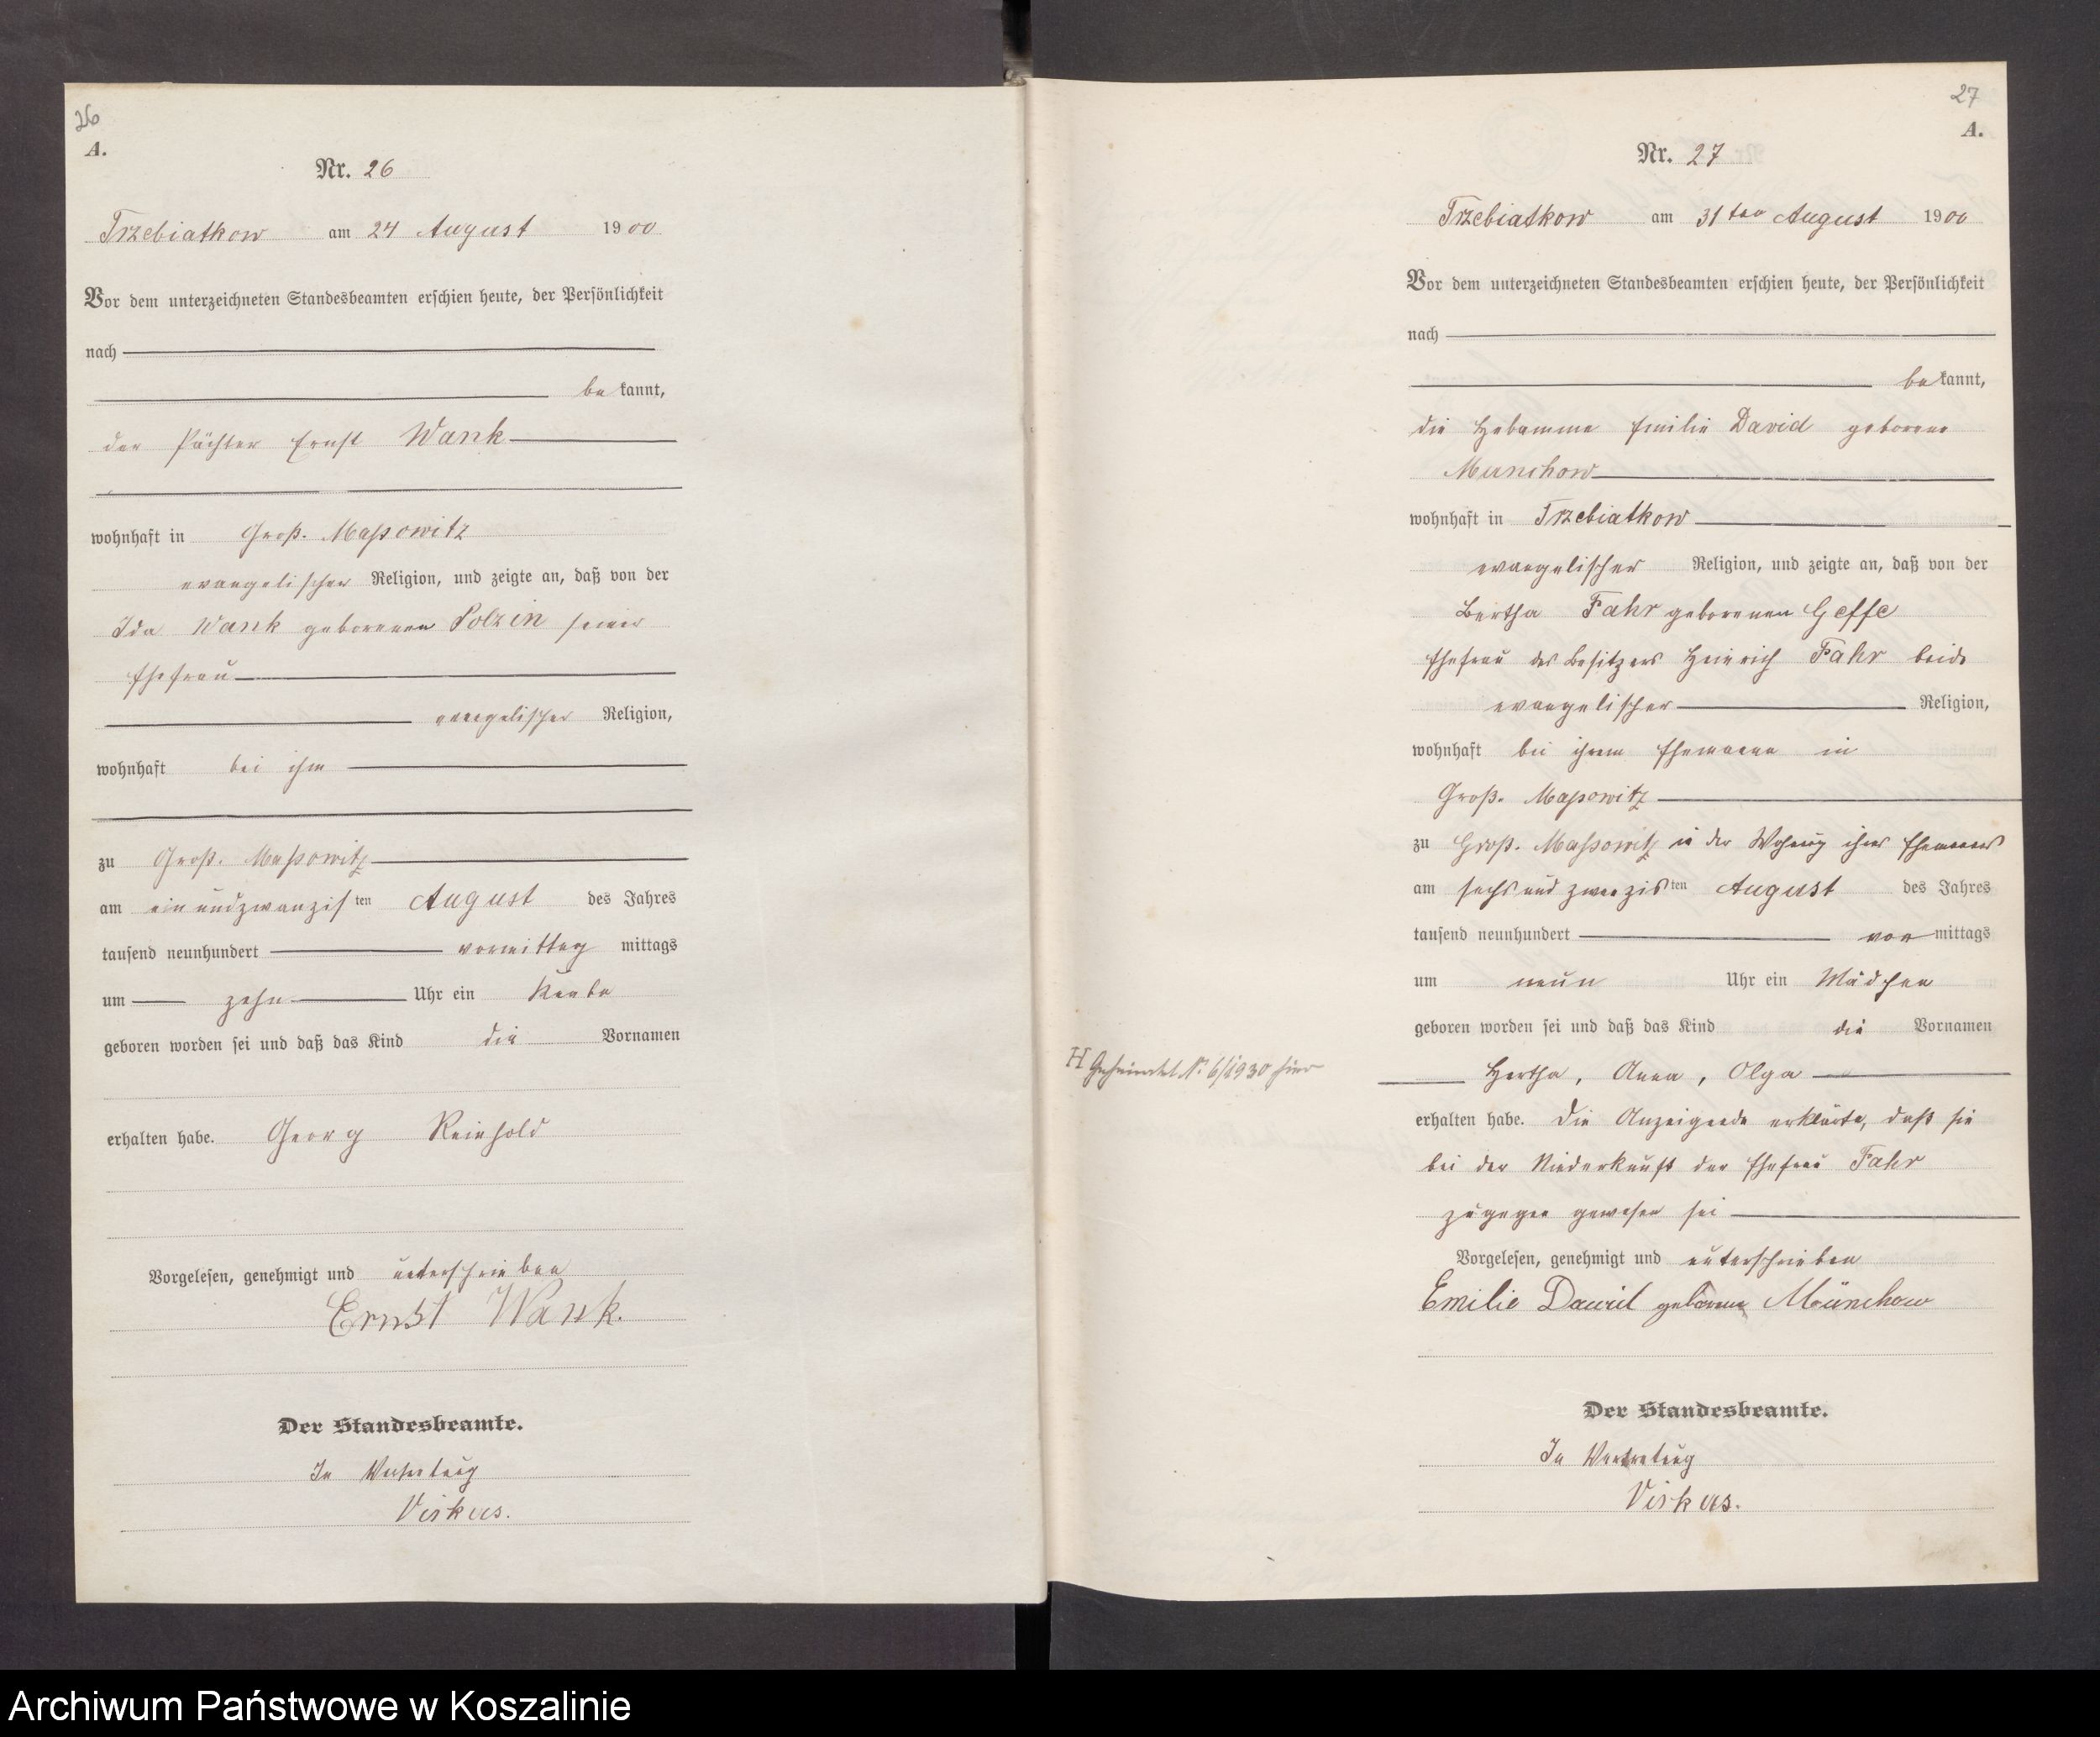 26
A.
Nr. 26
Trzebiatkow am 24 August 1900
Vor dem unterzeichneten Standesbeamten erschien heute, der Persönlichkeit
nach
bekannt,
der Pächter Ernst Wank
wohnhaft in Groß. Massowitz
evangelischer Religion, und zeigte an, daß von der
Ida Wank geborenen Polzin seiner
Ehefrau
evangelischer Religion,
wohnhaft bei ihm
zu Groß. Massowitz
am einundzwanzigsten August des Jahres
tausend neunhundert vormittag mittags
um zehn Uhr ein Knabe
geboren worden sei und daß das Kind die Vornamen
erhalten habe. Georg Reinhold
Vorgelesen, genehmigt und unterschrieben
Ernst Wank.
Der Standesbeamte.
In Vertretung
Viskus.
27
A.
Nr. 27
Trzebiatkow am 31ten August 1900
Vor dem unterzeichneten Standesbeamten erschien heute, der Persönlichkeit
nach
bekannt,
die Hebamme Emilie David geborene
Munchow
wohnhaft in Trzebiatkow
evangelischer Religion, und zeigte an, daß von der
Bertha Fahr geborenen Geffe
Ehefrau des Besitzers Heinrich Fahr beide
evangelischer Religion,
wohnhaft bei ihrem Ehemann in
Groß. Massowitz
zu Groß. Massowitz in der Wohnung ihres Ehemannes
am sechsundzwanzigsten August des Jahres
tausend neunhundert vormittags
um neun Uhr ein Mädchen
geboren worden sei und daß das Kind die Vornamen
H Geheiratet Nr. 6/1930 hier
Hertha, Anna, Olga
erhalten habe. Die Anzeigende erklärte, daß sie
bei der Niederkunft der Ehefrau Fahr
zugegen gewesen sei
Vorgelesen, genehmigt und unterschrieben
Emilie David geborene Münchow
Der Standesbeamte.
In Vertretung
Viskus.
Archiwum Państwowe w Koszalinie